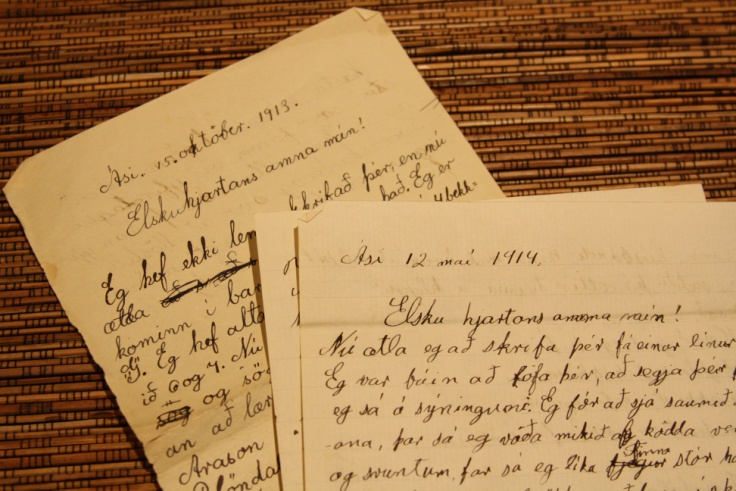 Ási. 15. október. 1913.
Elsku hjartans amma mín!
Eg hef ekki skrifað þér, en nú
ætla það. Eg er
kominn í bar 4 bekk.
Eg hef allta
ið 6 og 7. Nú
og sög
an að lær
Arason
Blöndal
Ási 12 maí 1914.
Elsku hjartans amma mín!
Nú ætla eg að skrifa þér fáeinar línur
Eg var búin að lofa þér, að segja þér f
eg sá á sýningunni. Eg fór að sjá saumið
ana, þar sá eg voða mikið af ködda ve
og svuntum, þar sá eg líka stór ha